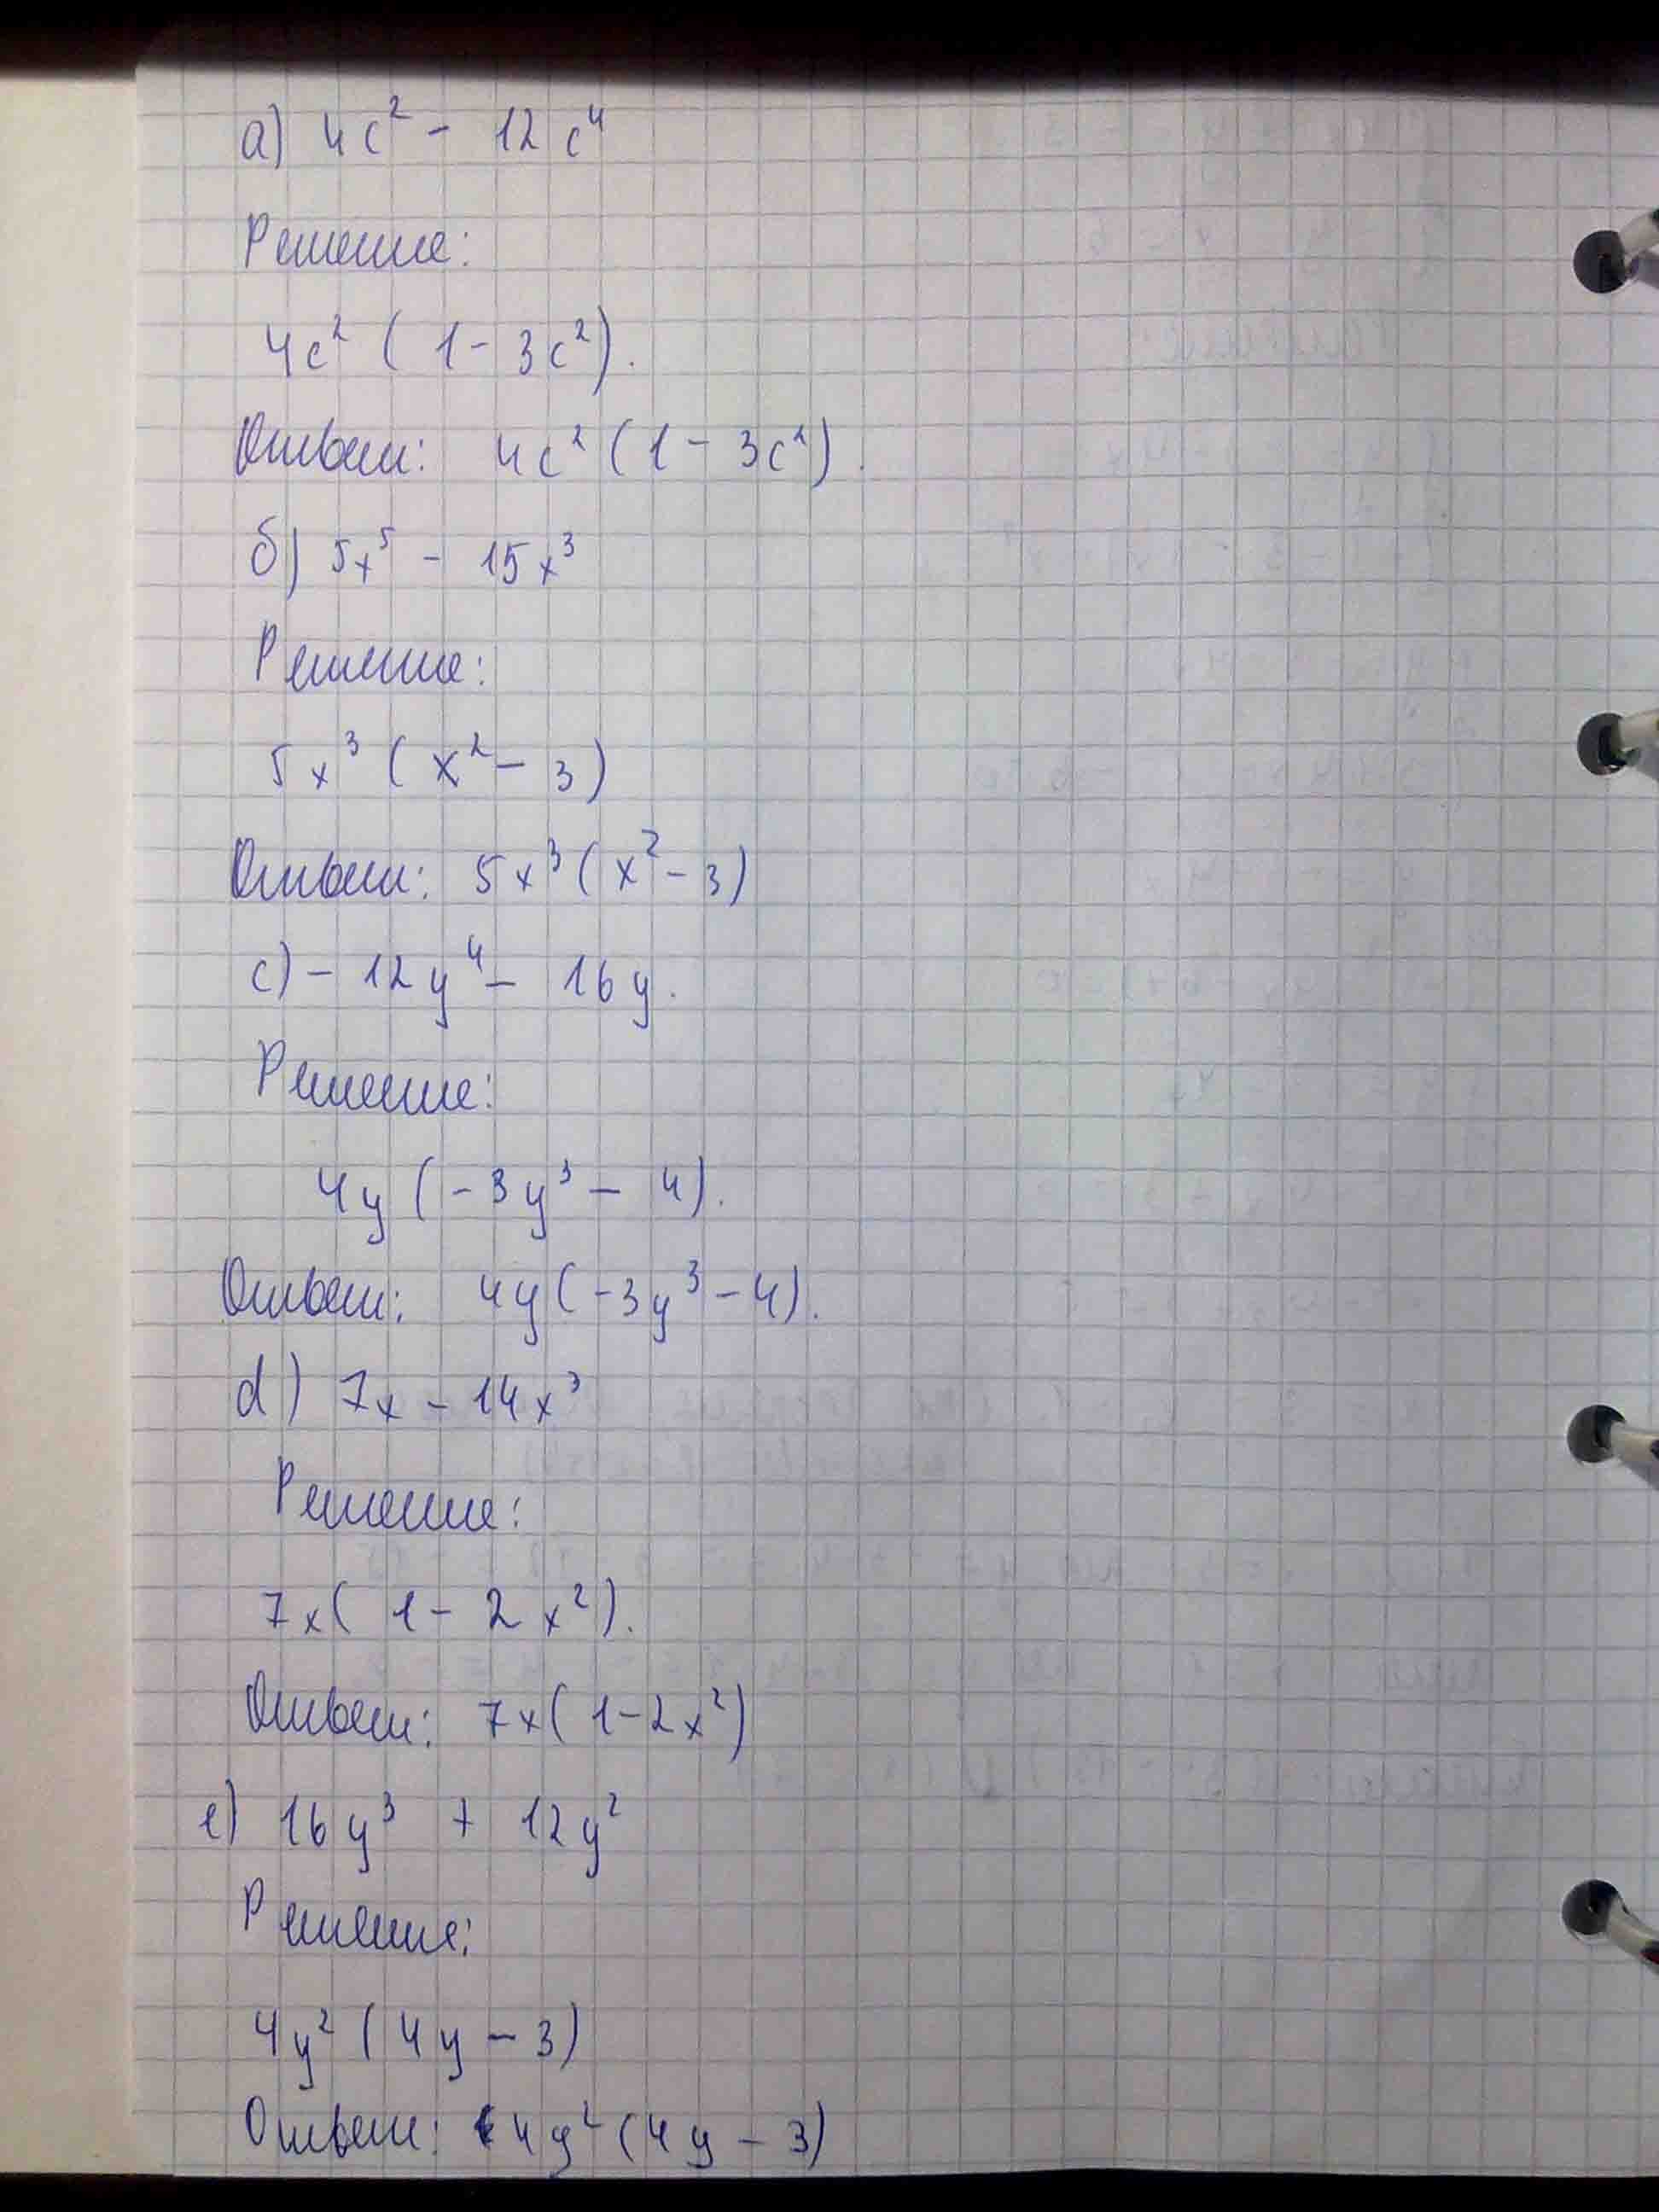 а) 4c² - 12c⁴
Решение:
4c² (1 - 3c²).
Ответ: 4c² (1 - 3c²).
б) 5x⁵ - 15x³
Решение:
5x³ (x² - 3)
Ответ: 5x³ (x² - 3)
c) - 12y⁴ - 16y.
Решение:
4y (-3y³ - 4).
Ответ: 4y (-3y³ - 4).
d) 7x - 14x³
Решение:
7x (1 - 2x²).
Ответ: 7x (1 - 2x²)
e) 16y³ + 12y²
Решение:
4y² (4y - 3)
Ответ: 4y² (4y - 3)